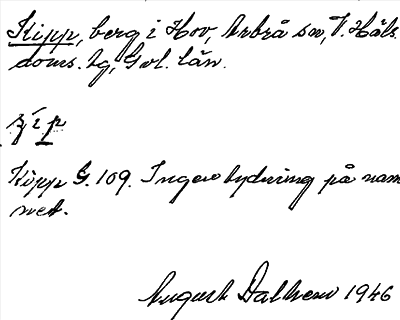 Kipp, berg i Hov, Arbrå sn, V. Häls.
doms. hg, Gvl. län.
Kipp G. 109. Ingen tydning på nam
net.
August Dalhem 1946